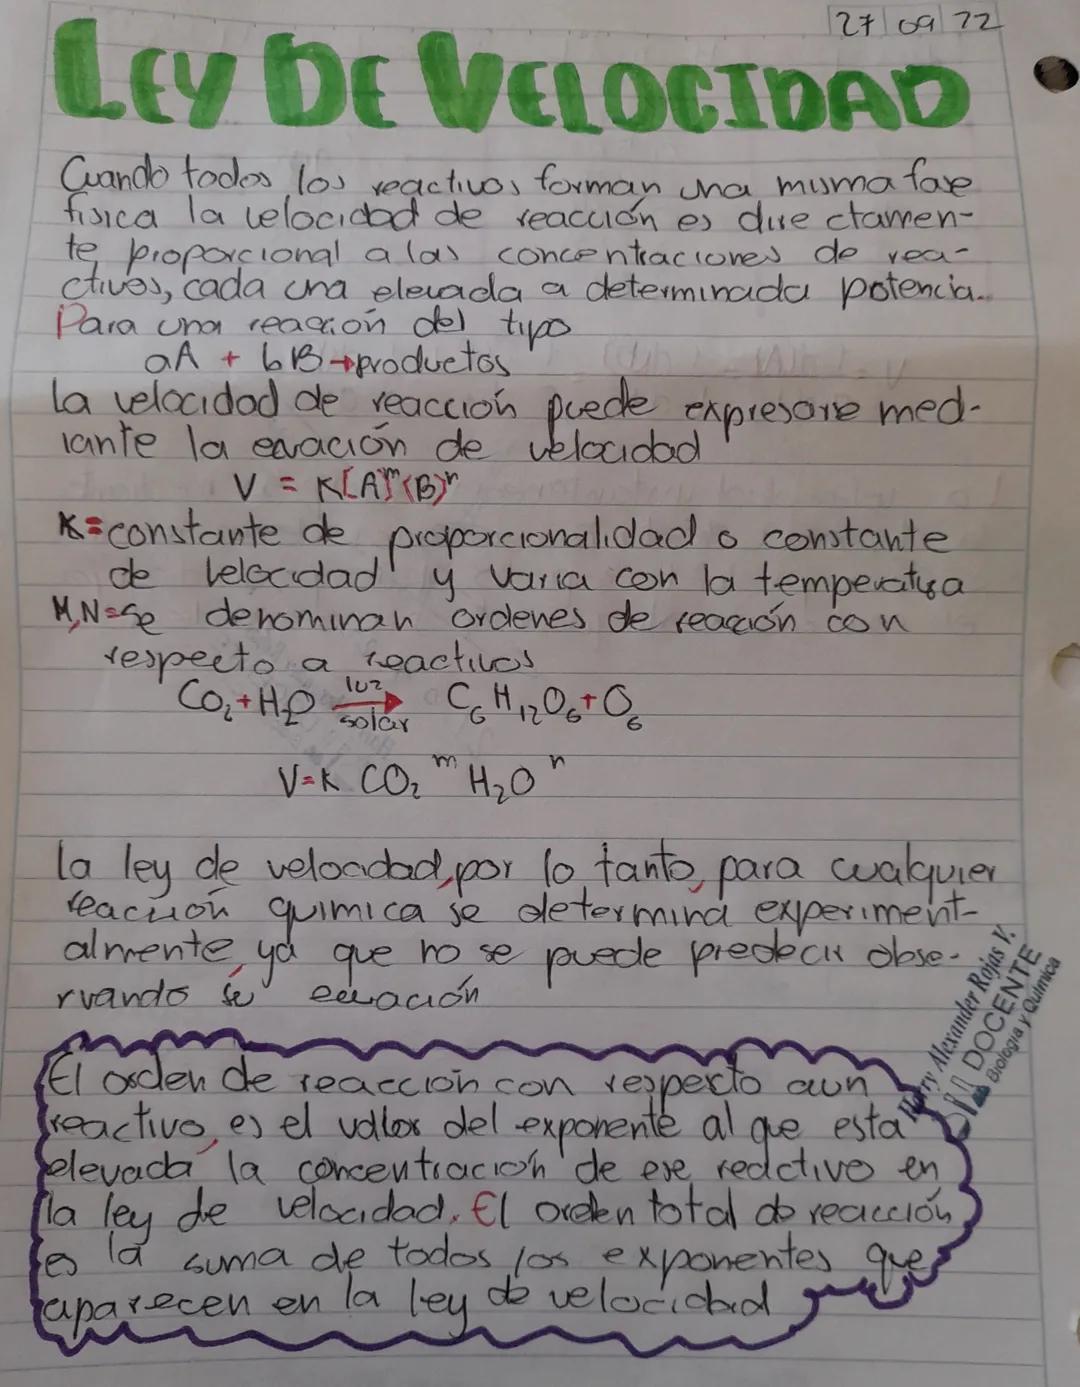 27 09 22
LEY DE VELOCIDAD
Cuando todos los reactivos forman una misma fase
fisica la velocidad de reacción es directamen-
te proporcional a las concentraciones de rea-
ctivos, cada una elevada a determinada potencia.
Para una reacción del tipo
aA + bB → productos
La velocidad de reacción puede expresare med-
iante la ecuación de velocidad
V = K[A]ᵐ(B)ⁿ
K= constante de proporcionalidad o constante
de velocidad y varia con la temperatura
M,N=Se denominan ordenes de reacción con
respecto a reactivos
CO₂+H₂O luz solar → C₆H₁₂O₆+O₆
V=K CO₂ ᵐ H₂O ⁿ
la ley de velocidad, por lo tanto, para cualquier
reacción quimica se determina experiment-
almente, ya que no se puede predecir obse-
rvando se ecuación
Harry Alexander Rojas V.
DOCENTE
Biología y Química
El orden de reacción con respecto aun
reactivo, es el vallor del exponente al que esta
elevada la concentración de ese reactivo en
la ley de velocidad. El orden total do reacción
es la suma de todos los exponentes que
aparecen en la ley de velocidad